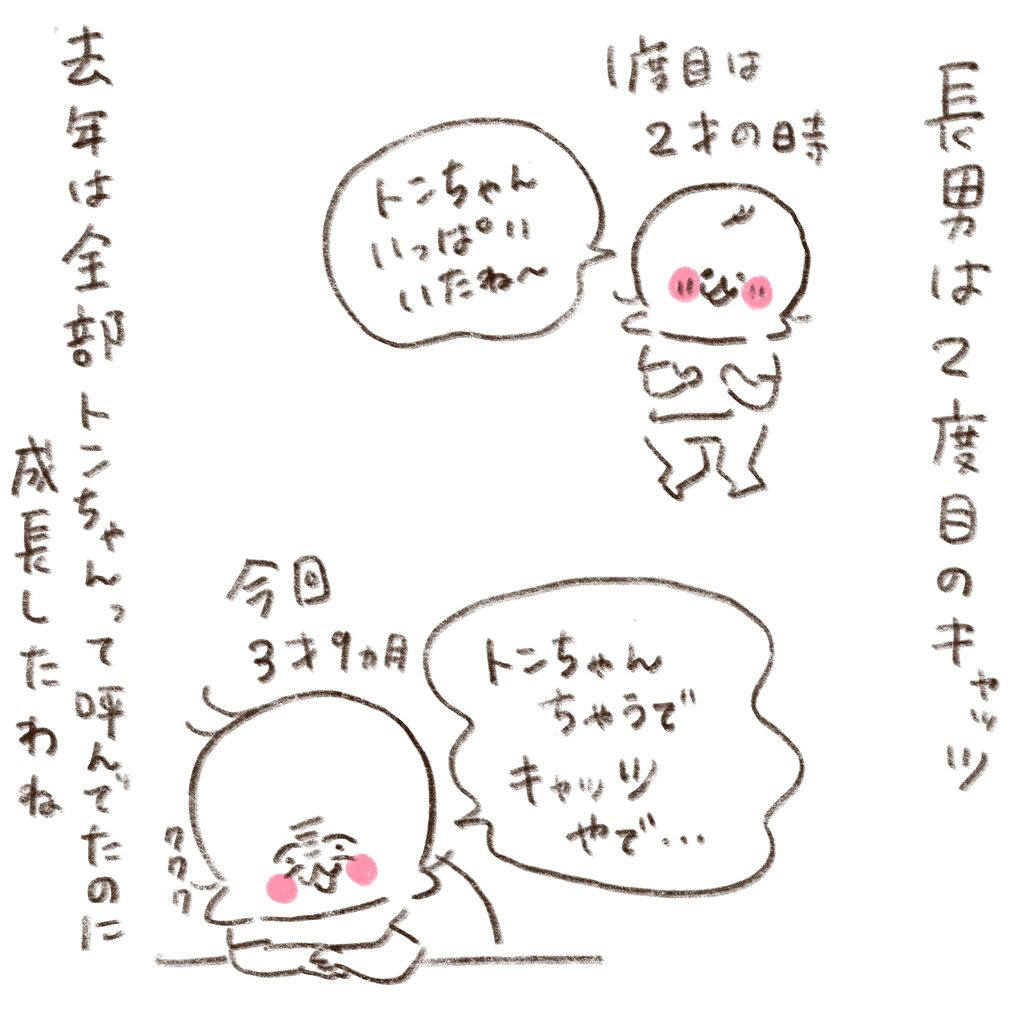 長男は2度目のキャッツ
1度目は
2才の時
トンちゃん
いっぱい
いたね〜
今回
3才9ヵ月
トンちゃん
ちゃうで
キャッツ
やで…
ククク
去年は全部トンちゃんって呼んでたのに
成長したわね